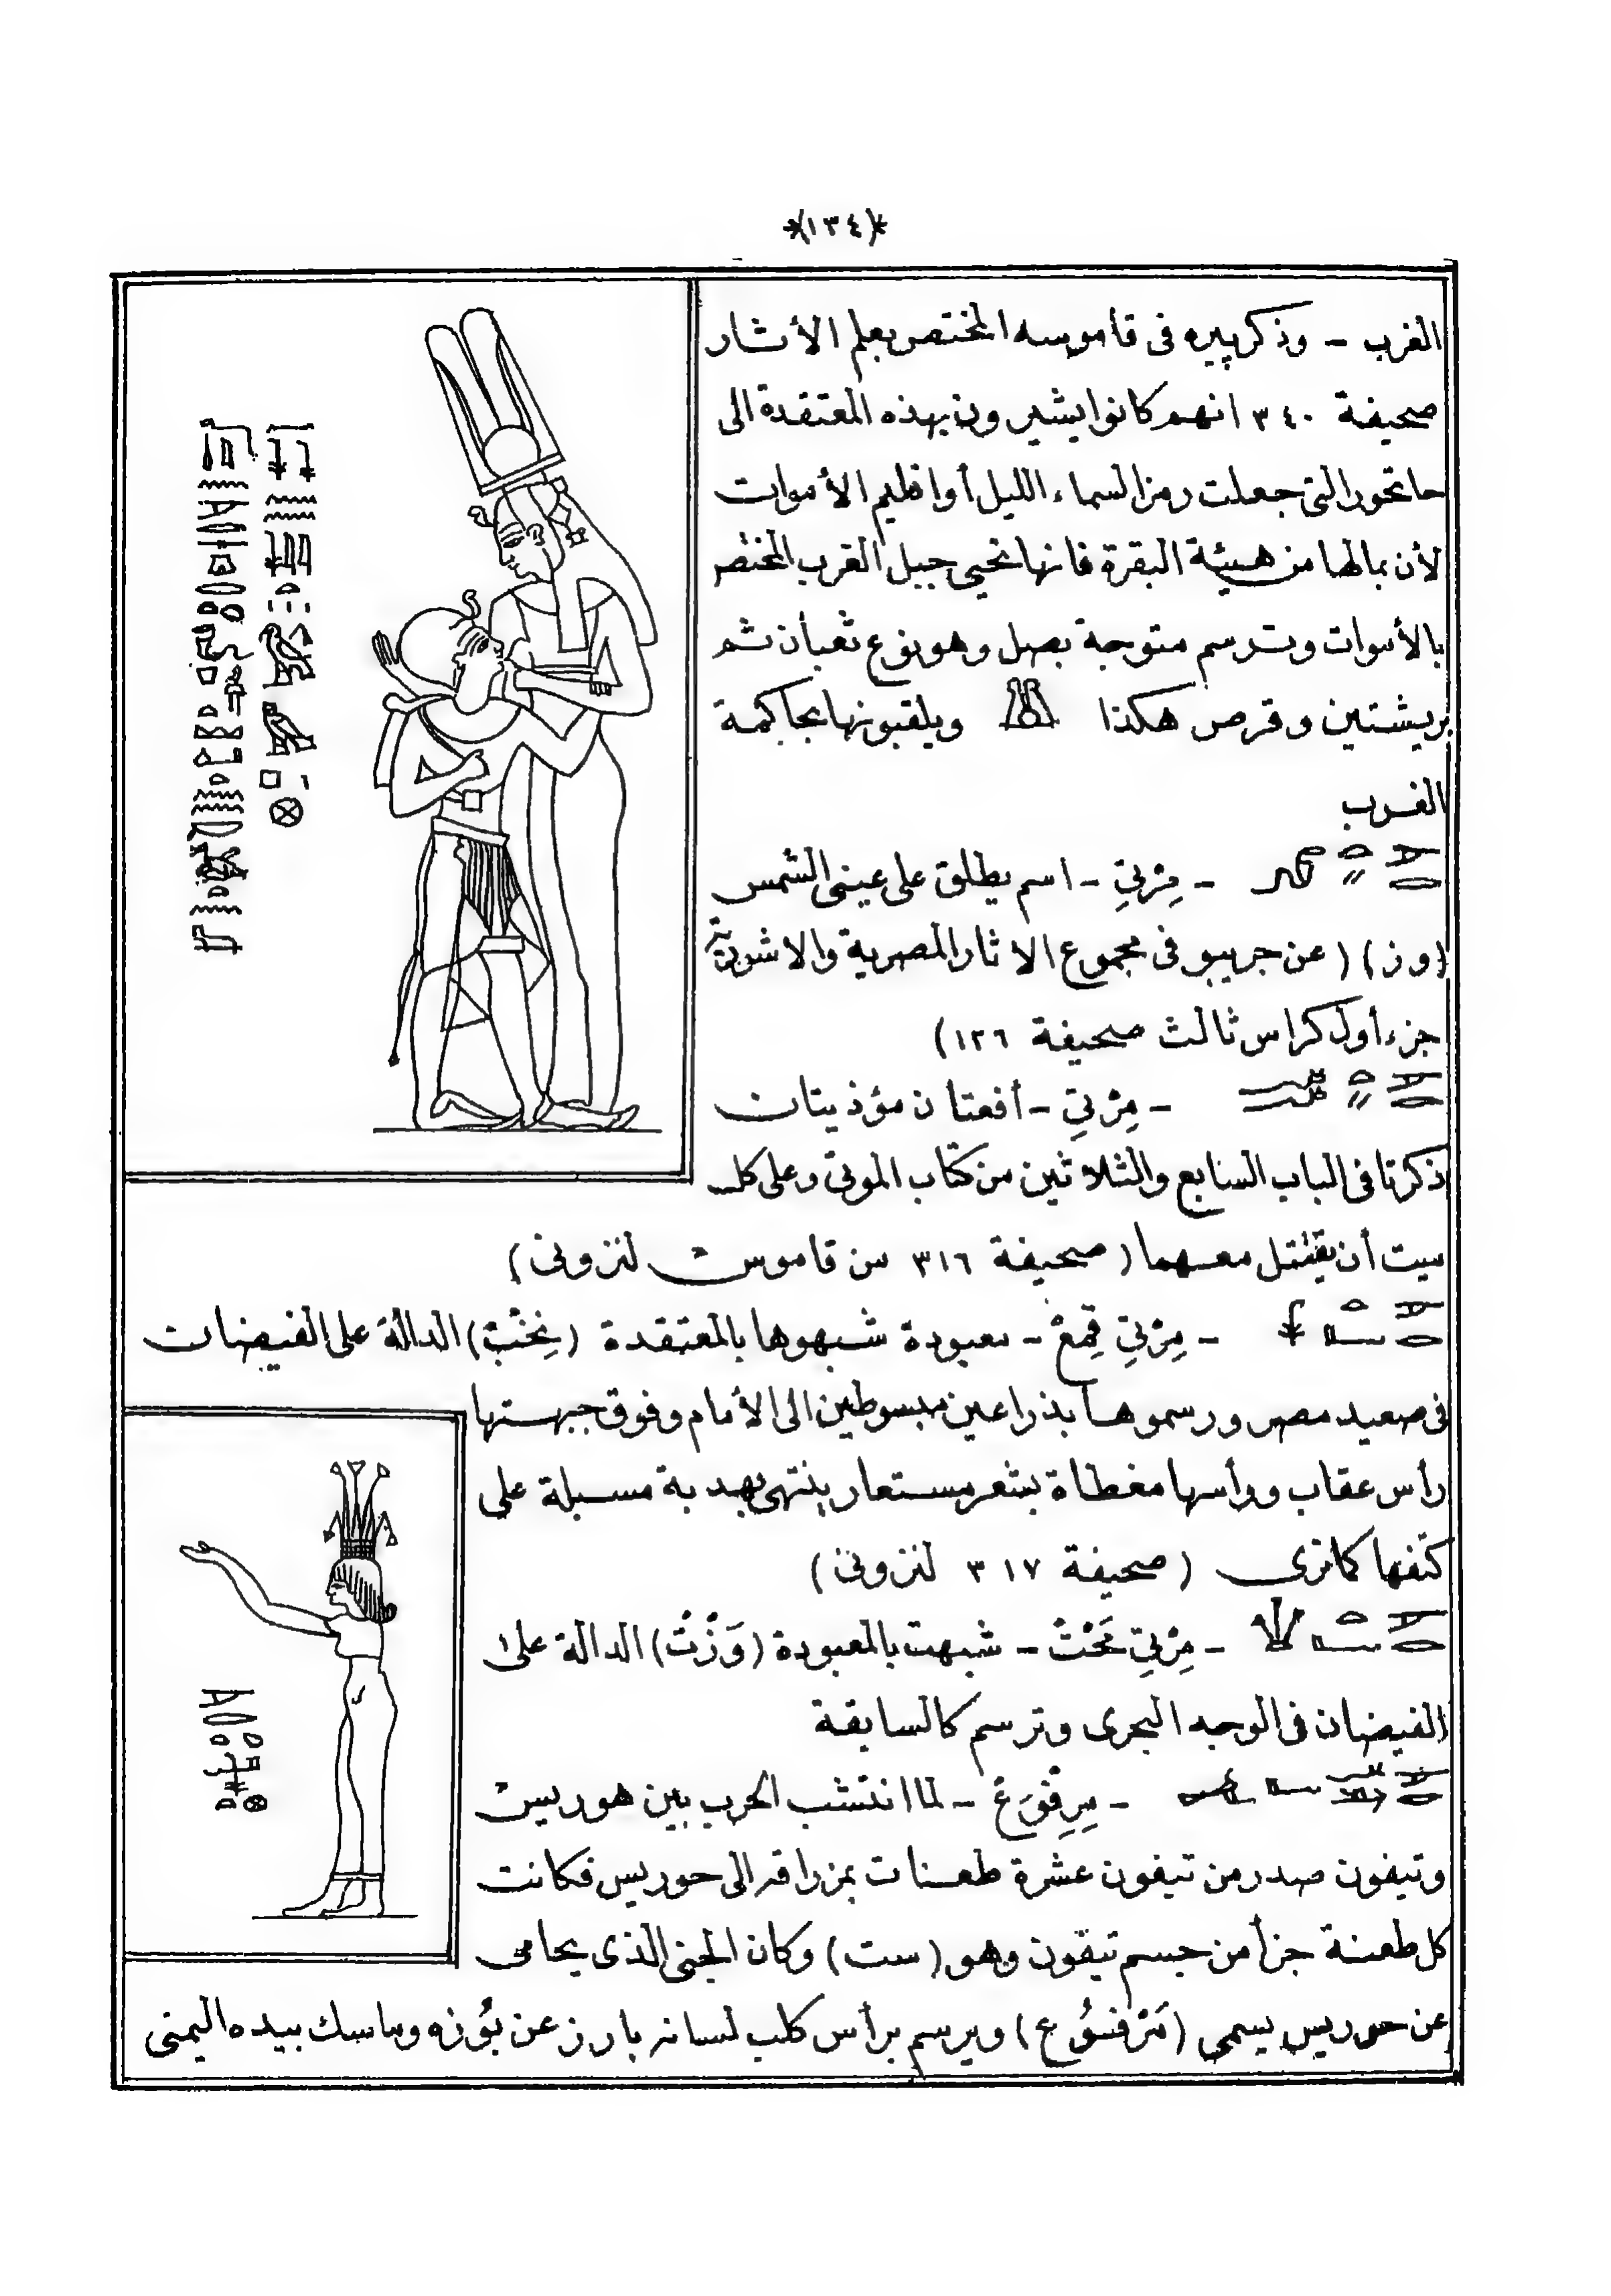 *(١٣٤)*
الغرب - وذكر پيره فى قاموسه المختص بعلم الأثار
صحيفة ٣٤٠ انهم كانوا يشيرون بهذه المعتقدة الى
حاتحور التى جعلت رمز السماء الليل أواقليم الأموات
لأن بمالها من هيئة البقرة فانها تحيى جبيل الغرب المختص
بالأموات وترسم متوجة بصل وهو نوع ثعبان ثم
بريشتين وقرص هكذا ويلقبونها بحاكمة
الغرب
- مِرْتِي - اسم يطلق على عينى الشمس
(وز) (عن جريبو فى مجموع الاثار المصرية والاشورية
جزء أول كراس ثالث صحيفة ١٢٦)
- مِرْتِي - أفعتان مؤذيتان
ذكرتا فى الباب السابع والثلاثين من كتاب الموتى وعلى كل
ميت أن يقتتل معهما (صحيفة ٣١٦ من قاموس لنزونى)
- مِرْتِي قِمِعْ - معبودة شبهوها بالمعتقدة (نِخْبْ) الدالة على الفيضان
فى صعيد مصر ورسموها بذراعين مبسوطين الى الأمام وفوق جبهتها
رأس عقاب ورأسها مغطاة بشعر مستعار ينتهى بهدبة مسبلة على
كتفها كماترى (صحيفة ٣١٧ لنزونى)
- مِرْتِي مَحْتْ - شبهت بالمعبودة (وَزْتْ) الدالة على
الفيضان فى الوجه البحرى وترسم كالسابقة
- لما انتشب الحرب بين هوريس
وتيفون صدر من تيفون عشرة طعنات بمزراقه الى حوريس فكانت
كل طعنة جزأ من جسم تيفون وهو (ست) وكان الجنى الذى يحامى
عن حوريس يسمى ويرسم برأس كلب لسانه بارز عن بُوزه وماسك بيده اليمنى